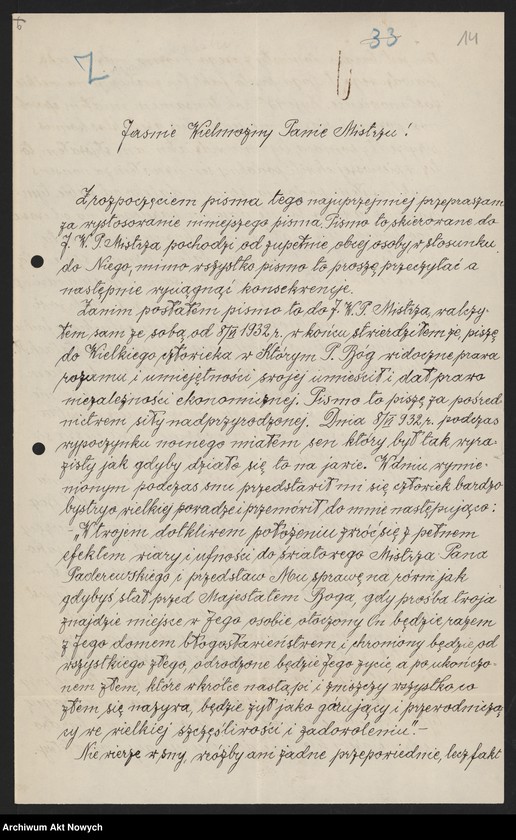 Z
33
14
Jaśnie Wielmożny Panie Mistrzu!
Z rozpoczęciem pisma tego najuprzejmiej przepraszam
za wystosowanie niniejszego pisma. Pismo to, skierowane do
J. W. P. Mistrza pochodzi od zupełnie, obcej osoby w stosunku
do Niego, mimo wszystko pismo to proszę przeczytać a
następnie wyciągnąć konsekwencje.
Zanim posłałem pismo to do J. W. P. Mistrza, walczy-
łem sam ze sobą od 8/ 1932 r. w końcu stwierdziłem że, piszę
do Wielkiego, człowieka w Którym P. Bóg widoczne prawa
rozumu i umiejętności swojej umieścił i dał prawo
niezależności ekonomicznej. Pismo to piszę za pośred-
nictwem siły nadprzyrodzonej. Dnia 8/ 932 r. podczas
wypoczynku nocnego miałem sen który był tak wyra-
zisty jak gdyby działo się to na jawie. W dniu wymie-
nionym podczas snu przedstawił mi się człowiek bardzo
bystry o wielkiej powadze i przemówił do mnie następująco:
- „W twojem dotkliwem położeniu zwróć się z pełnem
efektem wiary i ufności do światowego Mistrza Pana
Paderewskiego i przedstaw Mu sprawę na równi jak
gdybyś stał przed Majestatem Boga, gdy prośba twoja
znajdzie miejsce w Jego osobie, otoczony On będzie, razem
z Jego domem błogosławieństwem i chroniony będzie, od
wszystkiego złego, odrodzone będzie Jego życie, a po ukończo-
nem złem, które wkrótce nastąpi i zniszczy wszystko, co
złem się nazywa, będzie żył jako górujący i przewodniczą-
cy we wielkiej szczęśliwości i zadowoleniu".-
Nie wierzę w sny, wróżby ani żadne przepowiednie, lecz fakt
Archiwum Akt Nowych